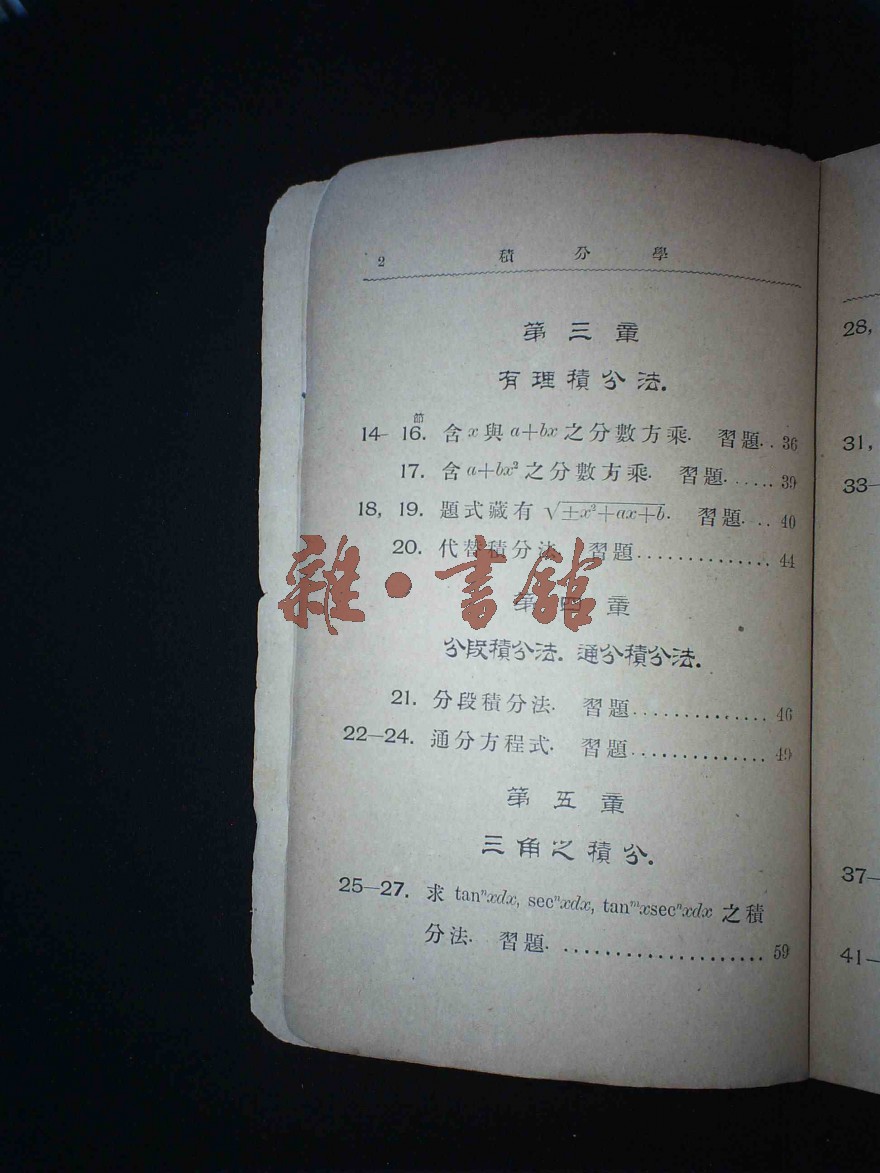 2 積分學
第三章
有理積分法.
節
14-16. 含x與a+bx之分數方乘. 習題..36
17. 含a+bx²之分數方乘. 習題......39
18, 19. 題式藏有 √±x²+ax+b. 習題....40
20. 代替積分法. 習題..............44
雜·書館
第四章
分段積分法. 通分積分法.
21. 分段積分法. 習題..............46
22—24. 通分方程式. 習題..............49
第五章
三角之積分.
25—27. 求 tanⁿxdx, secⁿxdx, tanᵐxsecⁿxdx 之積
分法. 習題.....................59
28,
31,
33—
37—
41—